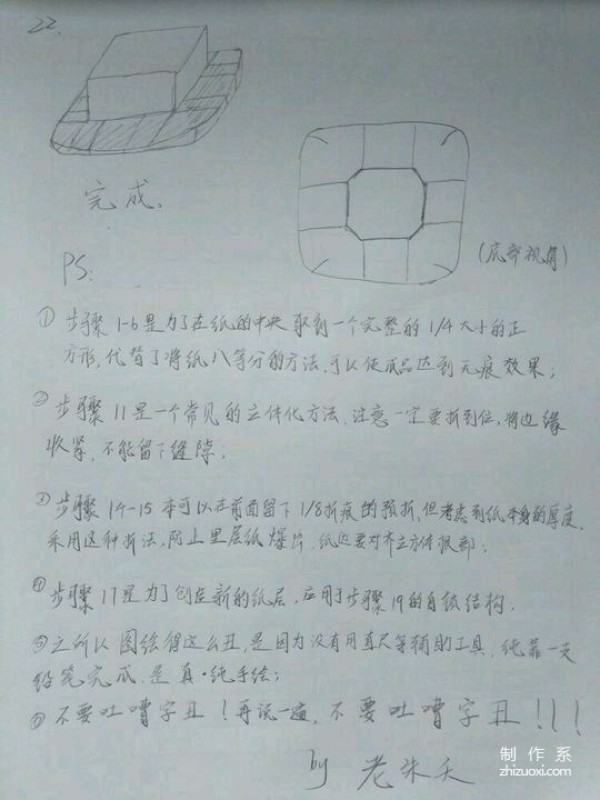 22.
完成.
(底部视角)
PS:
① 步骤1-6是为了在纸的中央取到一个完整的1/4大小的正
方形,代替了将纸八等分的方法,可以使成品达到无痕效果;
② 步骤11是一个常见的立体化方法,注意一定要折到位,将边缘
收紧,不能留下缝隙;
③ 步骤14-15本可以在前面留下1/8折痕的预折,但考虑到纸本身的厚度,
采用这种折法,防止里层纸爆出,纸边要对齐立方体根部;
④ 步骤17是为了创造新的纸层,应用于步骤19的自锁结构.
⑤之所以图绘得这么丑,是因为没有用直尺等辅助工具,纯靠一支
铅笔完成,是真·纯手绘;
⑥ 不要吐嘈字丑!再说一遍,不要吐嘈字丑!!!
by 老朱夭
制作系
zhizuoxi.com